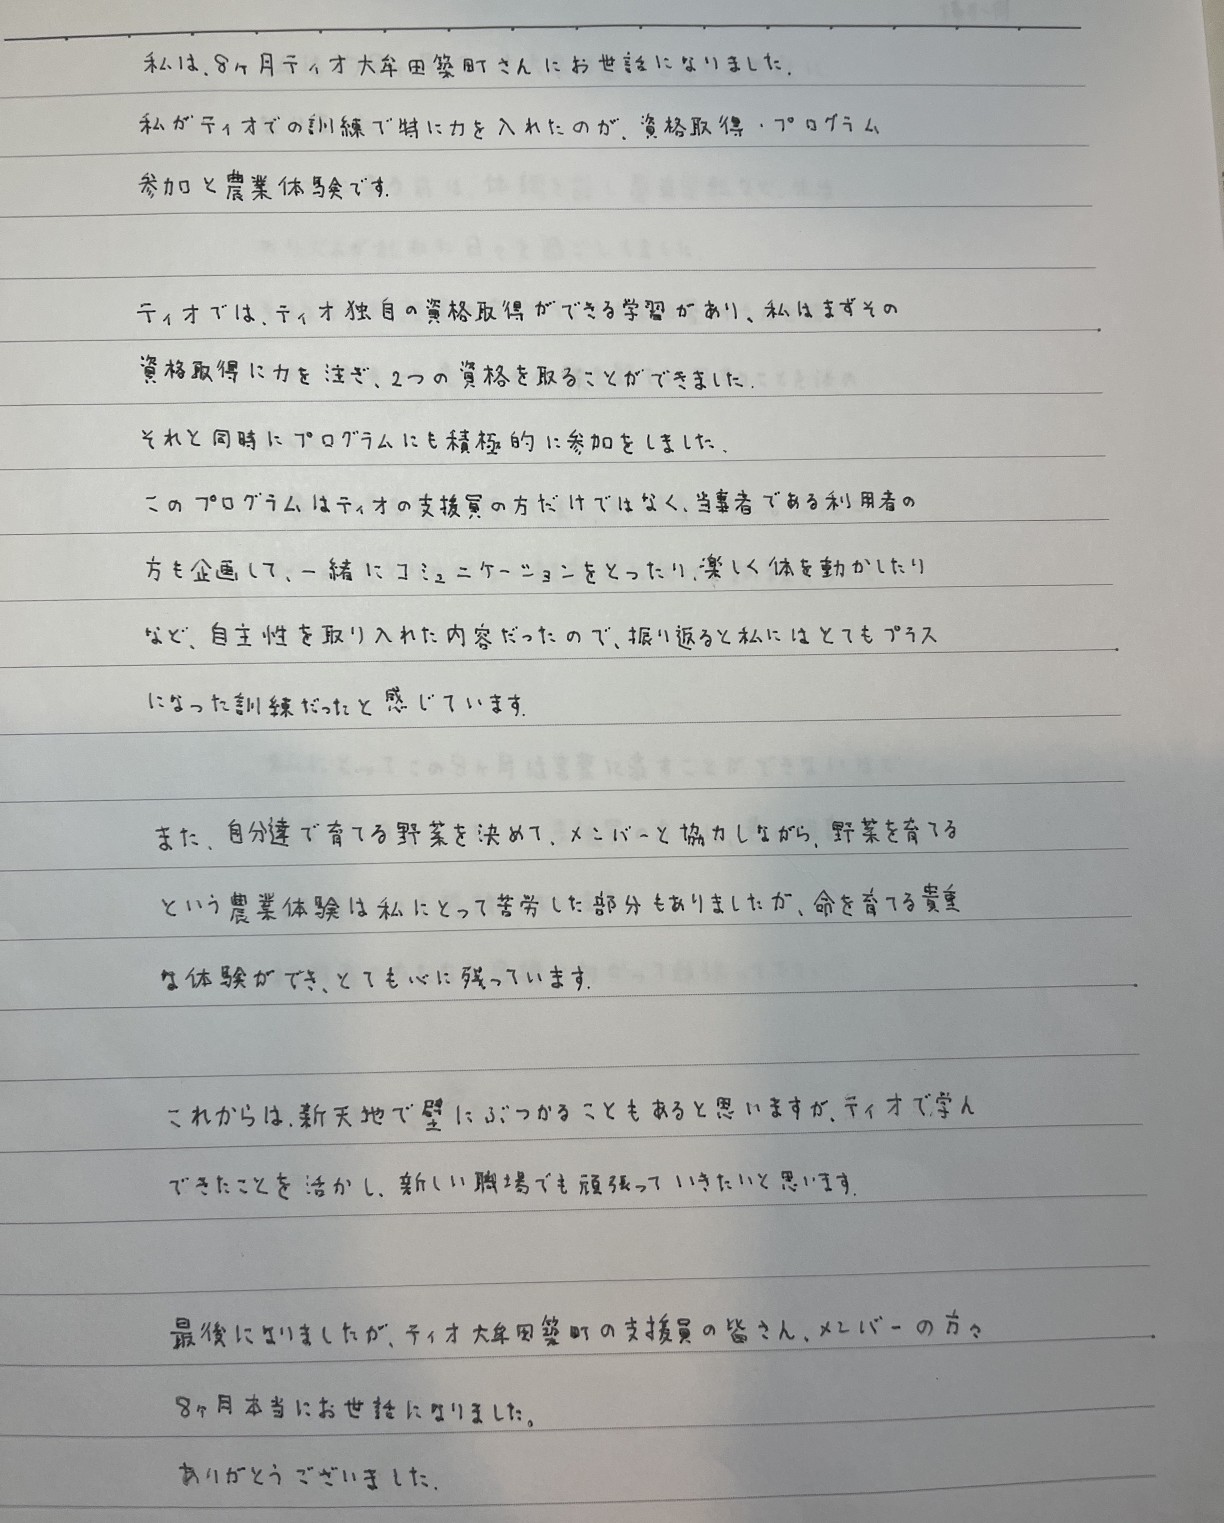 私は、8ヶ月ティオ大牟田築町さんにお世話になりました。
私がティオでの訓練で特に力を入れたのが、資格取得・プログラム
参加と農業体験です。
ティオでは、ティオ独自の資格取得ができる学習があり、私はまずその
資格取得に力を注ぎ、2つの資格を取ることができました。
それと同時にプログラムにも積極的に参加をしました。
このプログラムはティオの支援員の方だけではなく、当事者である利用者の
方も企画して、一緒にコミュニケーションをとったり、楽しく体を動かしたり
など、自主性を取り入れた内容だったので、振り返ると私にはとてもプラス
になった訓練だったと感じています。
また、自分達で育てる野菜を決めて、メンバーと協力しながら、野菜を育てる
という農業体験は私にとって苦労した部分もありましたが、命を育てる貴重
な体験ができ、とても心に残っています。
これからは、新天地で壁にぶつかることもあると思いますが、ティオで学ん
できたことを活かし、新しい職場でも頑張っていきたいと思います。
最後になりましたが、ティオ大牟田築町の支援員の皆さん、メンバーの方々
8ヶ月本当にお世話になりました。
ありがとうございました。